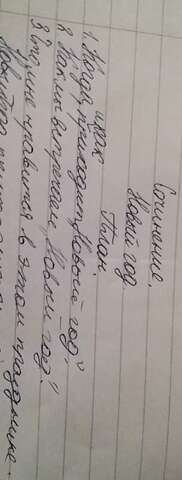 Сочинение.
Новый год.
План
и как
1. Когда приходит Новый год?
2. С кем встречаем Новый год?
3. Что мне нравится в этом празднике.